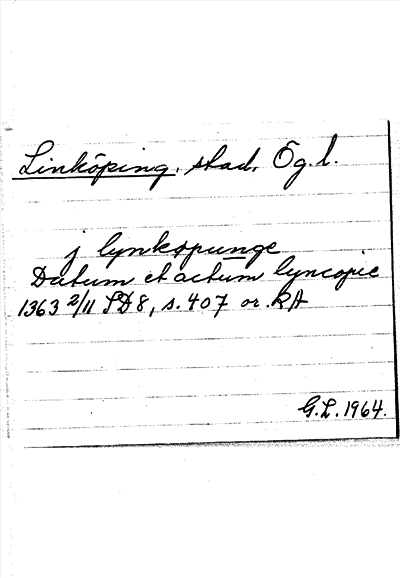 Linköping, stad, Ög.l.
j lynkøpunge
Datum et actum lyncopie
1363 2/11 SD 8, s. 407 or. RA
G.L. 1964.